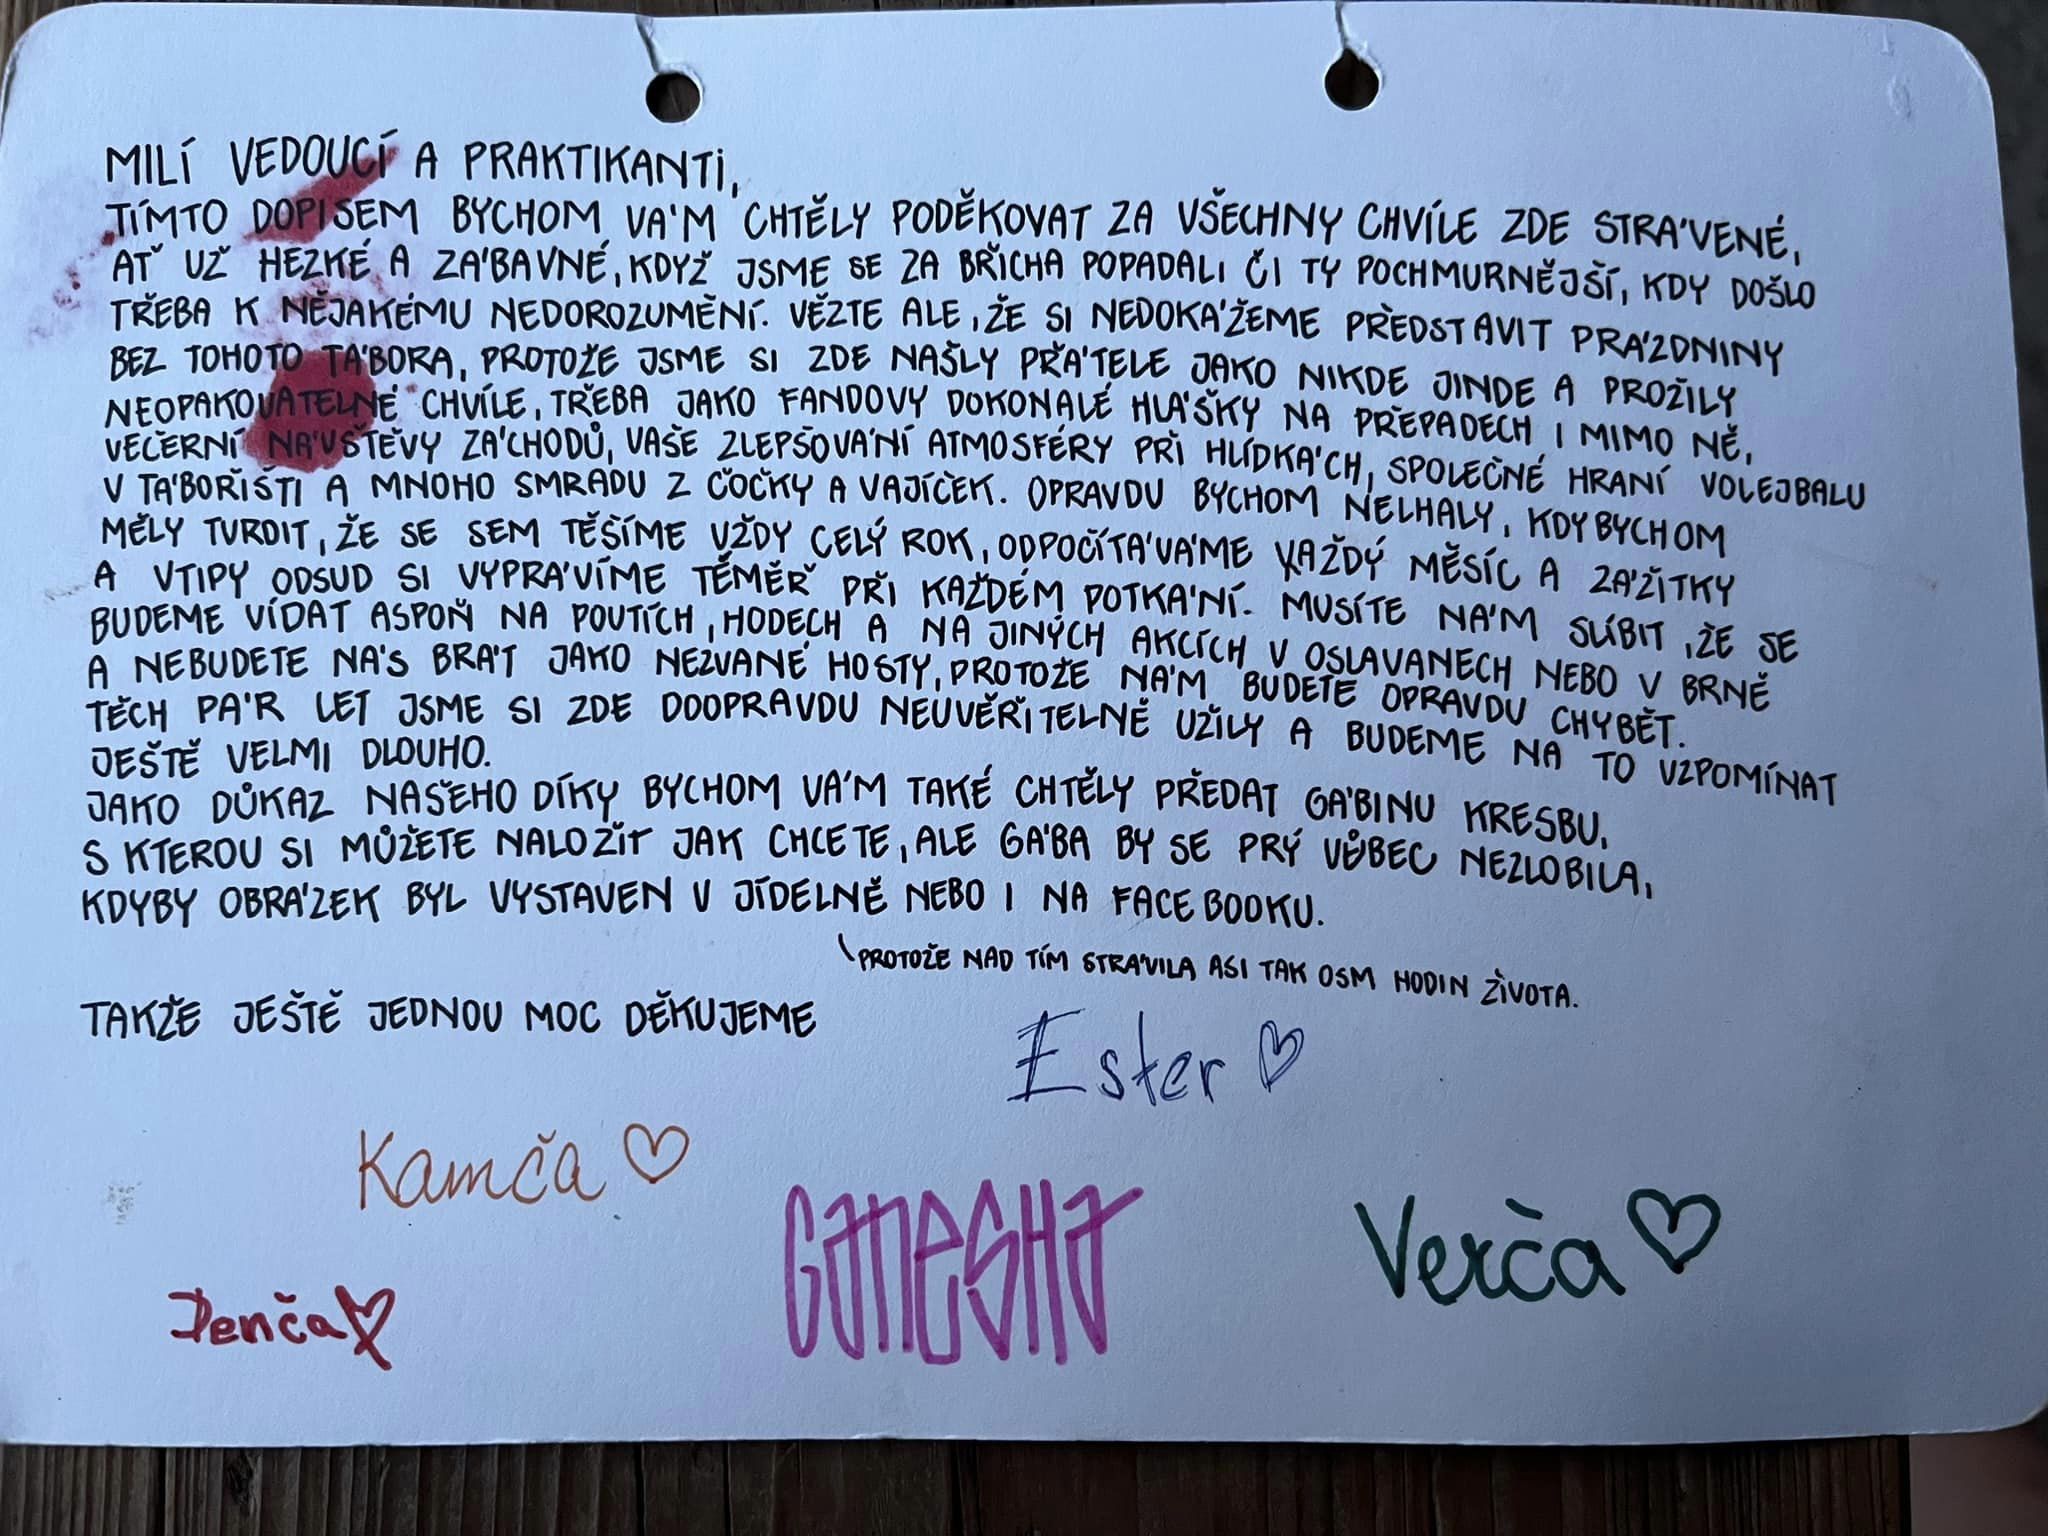 MILÍ VEDOUCÍ A PRAKTIKANTI,
TÍMTO DOPISEM BYCHOM VÁM CHTĚLY PODĚKOVAT ZA VŠECHNY CHVÍLE ZDE STRÁVENÉ,
AŤ UŽ HEZKÉ A ZÁBAVNÉ, KDYŽ JSME SE ZA BŘICHA POPADALI ČI TY POCHMURNĚJŠÍ, KDY DOŠLO
TŘEBA K NĚJAKÉMU NEDOROZUMĚNÍ. VĚZTE ALE, ŽE SI NEDOKÁŽEME PŘEDSTAVIT PRÁZDNINY
BEZ TOHOTO TÁBORA, PROTOŽE JSME SI ZDE NAŠLY PŘÁTELE JAKO NIKDE JINDE A PROŽILY
NEOPAKOVATELNÉ CHVÍLE, TŘEBA JAKO FANDOVY DOKONALÉ HLÁŠKY NA PŘEPADECH I MIMO NĚ,
VEČERNÍ NÁVŠTĚVY ZÁCHODŮ, VAŠE ZLEPŠOVÁNÍ ATMOSFÉRY PŘI HLÍDKÁCH, SPOLEČNÉ HRANÍ VOLEJBALU
V TÁBOŘIŠTI A MNOHO SMRADU Z ČOČKY A VAJÍČEK. OPRAVDU BYCHOM NELHALY, KDYBYCHOM
MĚLY TVRDIT, ŽE SE SEM TĚŠÍME VŽDY CELÝ ROK, ODPOČÍTÁVÁME KAŽDÝ MĚSÍC A ZÁŽITKY
A VTIPY ODSUD SI VYPRÁVÍME TÉMĚŘ PŘI KAŽDÉM POTKÁNÍ. MUSÍTE NÁM SLÍBIT, ŽE SE
BUDEME VÍDAT ASPOŇ NA POUTÍCH, HODECH A NA JINÝCH AKCÍCH V OSLAVANECH NEBO V BRNĚ
A NEBUDETE NÁS BRÁT JAKO NEZVANÉ HOSTY, PROTOŽE NÁM BUDETE OPRAVDU CHYBĚT.
TĚCH PÁR LET JSME SI ZDE DOOPRAVDU NEUVĚŘITELNĚ UŽILY A BUDEME NA TO VZPOMÍNAT
JEŠTĚ VELMI DLOUHO.
JAKO DŮKAZ NAŠEHO DÍKY BYCHOM VÁM TAKÉ CHTĚLY PŘEDAT GÁBINU KRESBU,
S KTEROU SI MŮŽETE NALOŽIT JAK CHCETE, ALE GÁBA BY SE PRÝ VŮBEC NEZLOBILA,
KDYBY OBRÁZEK BYL VYSTAVEN V JÍDELNĚ NEBO I NA FACEBOOKU.
PROTOŽE NAD TÍM STRÁVILA ASI TAK OSM HODIN ŽIVOTA.
TAKŽE JEŠTĚ JEDNOU MOC DĚKUJEME
Ester
Kamča
GANESHA
Verča
Denča